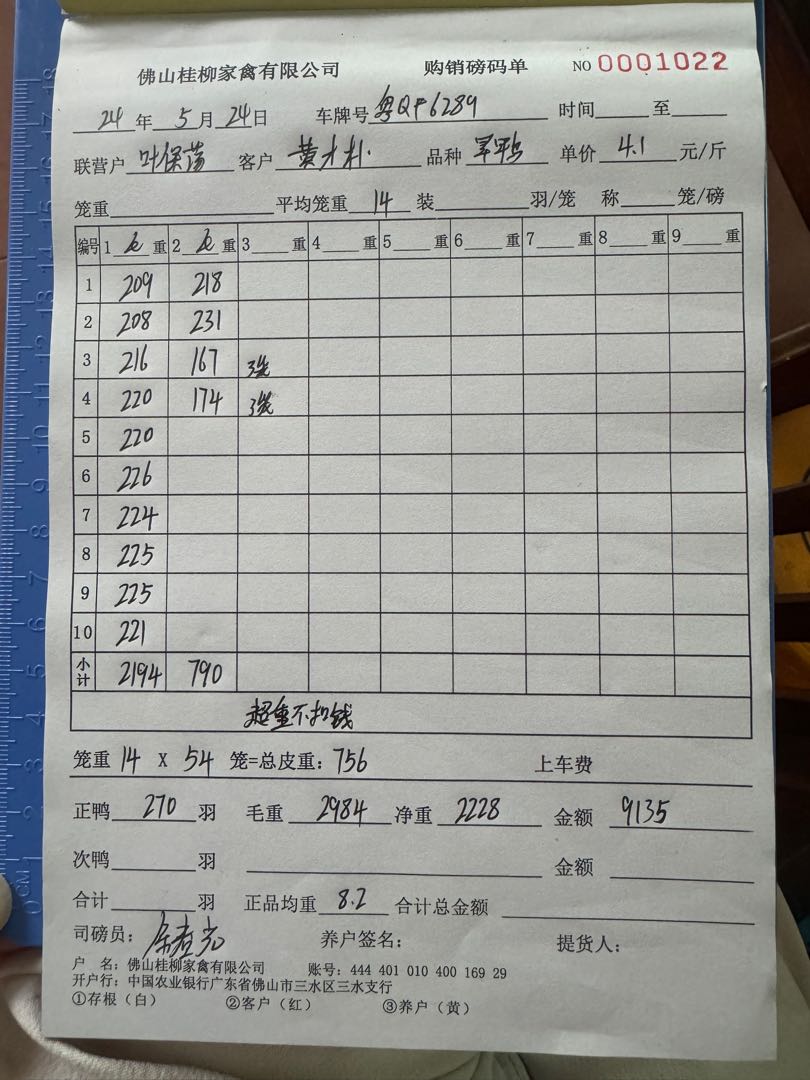 佛山桂柳家禽有限公司 购销磅码单 NO 0001022
24 年 5 月 24 日 车牌号 粤QF6289 时间 至
联营户 叶保荡 客户 黄才朴 品种 单价 4.1 元/斤
笼重 平均笼重 14 装 羽/笼 称 笼/磅
编号 1 毛 重 2 毛 重 3 重 4 重 5 重 6 重 7 重 8 重 9 重
1 209 218
2 208 231
3 216 167 3笼
4 220 174 3笼
5 220
6 226
7 224
8 225
9 225
10 221
小计 2194 790
超重不扣钱
笼重 14 X 54 笼=总皮重: 756 上车费
正鸭 270 羽 毛重 2984 净重 2228 金额 9135
次鸭 羽 金额
合计 羽 正品均重 8.2 合计总金额
司磅员: 养户签名: 提货人:
户 名: 佛山桂柳家禽有限公司 账号: 444 401 010 400 169 29
开户行: 中国农业银行广东省佛山市三水区三水支行
①存根（白） ②客户（红） ③养户（黄）